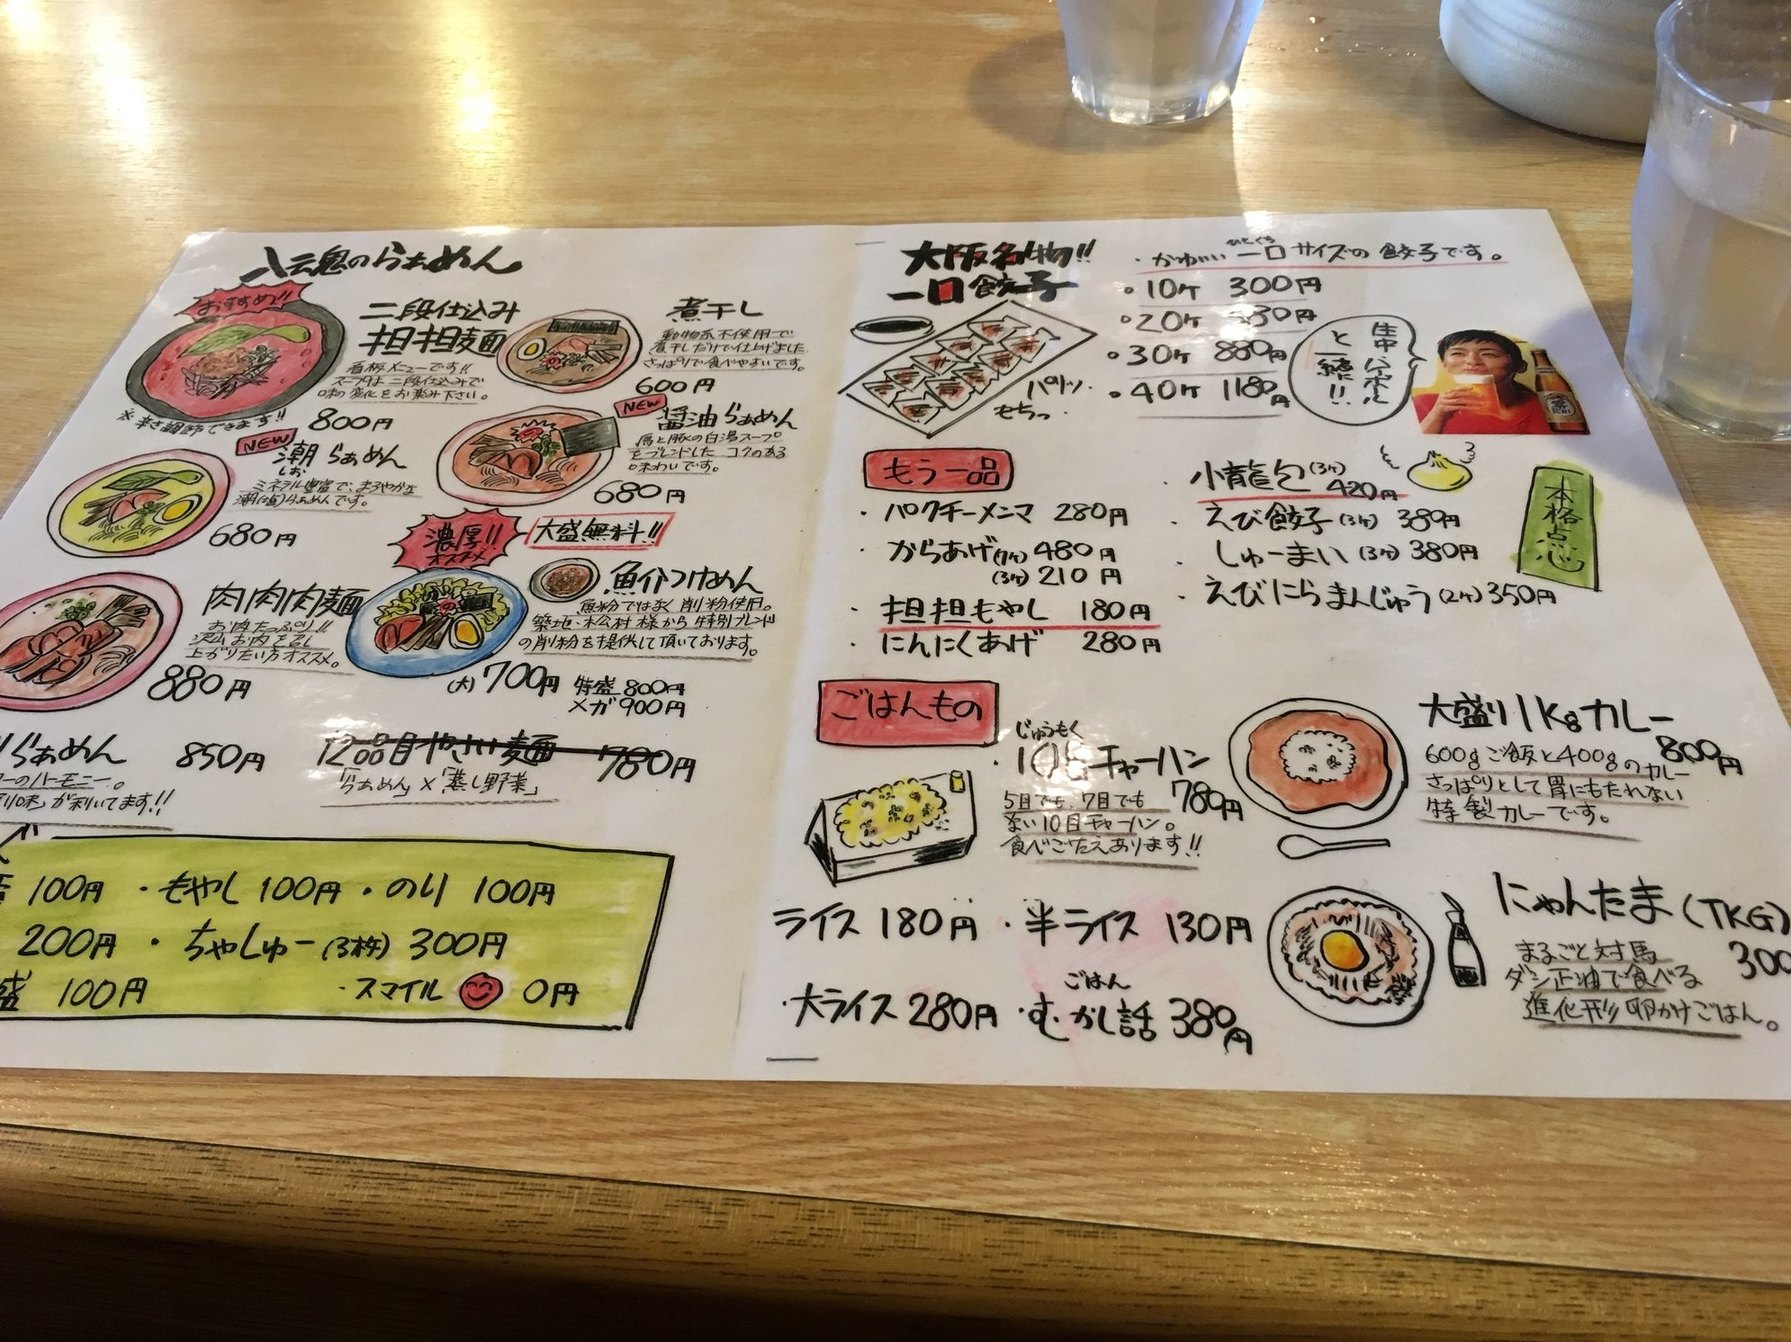 八云鬼のらぁめん
おすすめ!!
二段仕込み
担担麺
看板メニューです!!
スープは二段仕込みで
味の変化をお楽み下さい。
※辛さ調節できます!!
800円
煮干し
動物系不使用で
煮干しだけで仕上げました
さっぱりで食べやすいです。
600円
NEW
潮らぁめん
しお
ミネラル豊富で、まろやかな
潮(塩)らぁめんです。
680円
NEW
醤油らぁめん
鳥と豚の白湯スープ
をブレンドした コクのある
味わいです。
680円
肉肉肉麺
お肉たっぷり!!
沢山お肉を召し
上がりたい方オススメ。
880円
濃厚!!
オススメ
大盛無料!!
魚介つけめん
魚粉ではなく削粉使用。
築地・松村様から特別ブレンド
の削粉を提供して頂いております。
(大)700円 特盛 800円
メガ 900円
らぁめん 850円
のハーモニー。
味」が利いてます!!
12品目やさい麺 780円
「らぁめん」×「蒸し野菜」
100円 ・もやし 100円 ・のり 100円
200円 ・ちゃしゅー(3枚) 300円
盛 100円 ・スマイル 0円
大阪名物!!
一口餃子
・かわいい一口サイズの餃子です。
ひとくち
・10ケ 300円
・20ケ
・30ケ 880円
・40ケ 1180円
パリッ
もちっ
生中 ハイボール
と一緒に!!
もう一品
・パクチーメンマ 280円
・からあげ 480円
(3ケ) 210円
・担担もやし 180円
・にんにくあげ 280円
・小龍包(3ケ)
420円
・えび餃子(3ケ) 389円
しゅーまい(3ケ) 380円
・えびにらまんじゅう(2ケ)350円
本格点心
ごはんもの
じゅうもく
・10目チャーハン
780円
5目でも、7目でも
ない10目チャーハン。
食べごたえあります!!
ライス 180円 ・半ライス 130円
ごはん
・大ライス 280円 ・むかし話 380円
大盛り1kgカレー
800円
600gご飯と400gのカレー
さっぱりとして胃にもたれない
特製カレーです。
にゃんたま(TKG)
300
まるごと対馬
ダシ正油で食べる
進化形卵かけごはん。